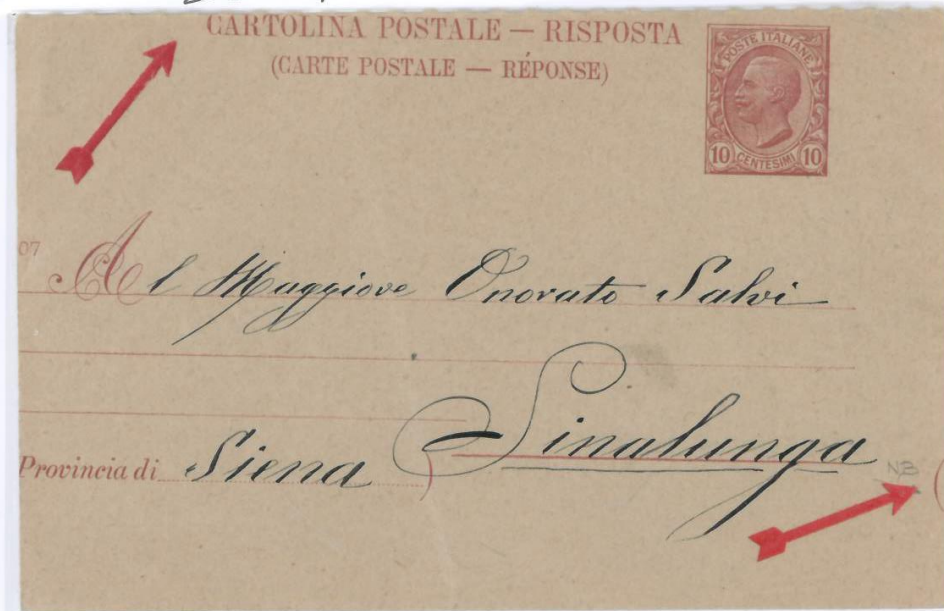 CARTOLINA POSTALE — RISPOSTA
(CARTE POSTALE — RÉPONSE)
POSTE ITALIANE
10 CENTESIMI 10
07
Al Maggiore Onorato Salvi
Sinalunga
Provincia di Siena )
NB
(